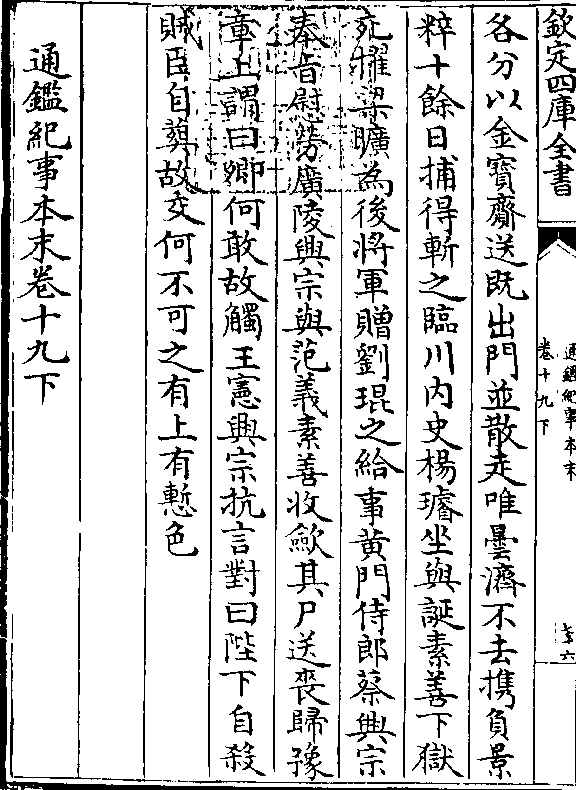 欽定四庫全書
通鑑紀事本末
卷十九下
各分以金寶齎送既出門並散走唯曇濟不去携負景
粹十餘日捕得斬之臨川内史楊璿坐與誕素善下獄
死擢梁曠為後將軍贈劉琨之給事黄門侍郎蔡興宗
奉㫖慰勞廣陵興宗與范義素善收歛其尸送喪歸豫
章上謂曰卿何敢故觸王憲興宗抗言對曰陛下自殺
賊臣自葬故交何不可之有上有慙色
通鑑紀事本末卷十九下